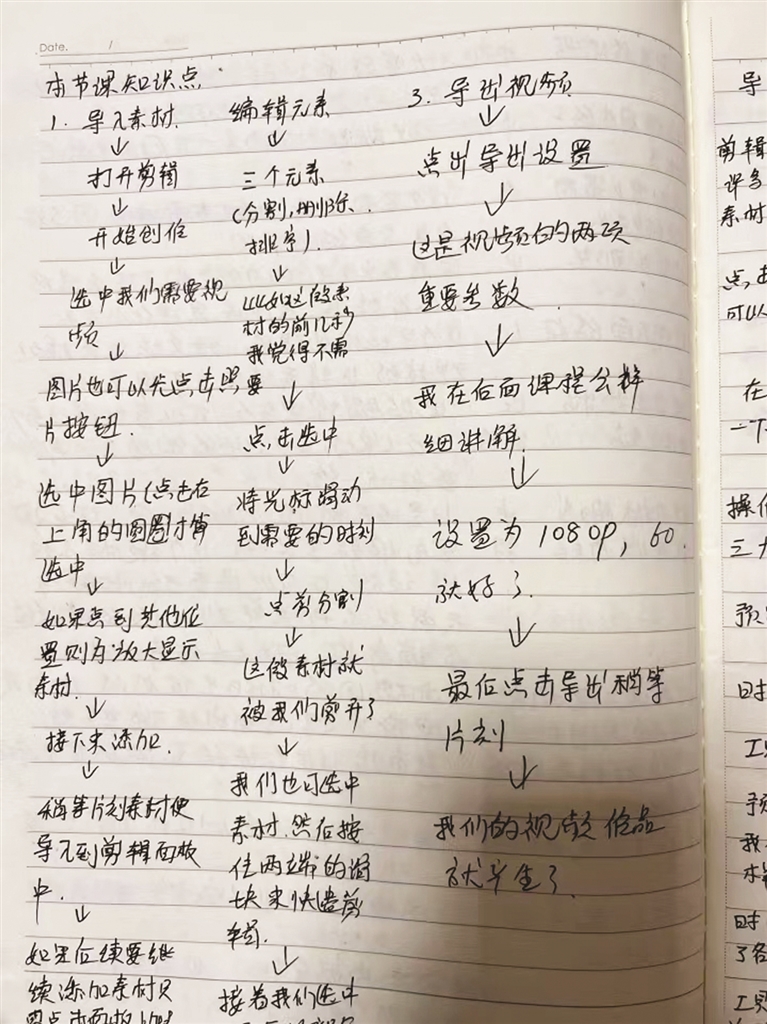 Date. /
本节课知识点
1. 导入素材
↓
打开剪辑
↓
开始创作
↓
选中我们需要视
频
↓
图片也可以先点击照
片按钮.
↓
选中图片(点击右
上角的圆圈才算
选中
↓
如果点到其他位
置则为放大显示
素材.
↓
接下来添加.
↓
稍等片刻素材便
导入到剪辑面板
中.
↓
如果后续要继
续添加素材只
编辑元素
↓
三个元素
(分割,删除、
排序).
↓
比如这段素
材的前几秒
我觉得不需
要
↓
点击选中
↓
将光标滑动
到需要的时刻
↓
点剪分割
↓
这段素材就
被我们剪开了
↓
我们也可选中
素材.然后按
住两端的滑
块来快速剪
辑.
↓
接着我们选中
3. 导出视频
↓
点击导出设置
↓
这是视频的两项
重要参数
↓
我在后面课程会详
细讲解.
↓
设置为1080p,60.
就好了.
↓
最后点击导出稍等
片刻
↓
我们的视频作品
就诞生了
导
剪辑
许多
素材
点击
可以
在
一下
操作
三大
预
时
工具
预
我
时
了各
工具